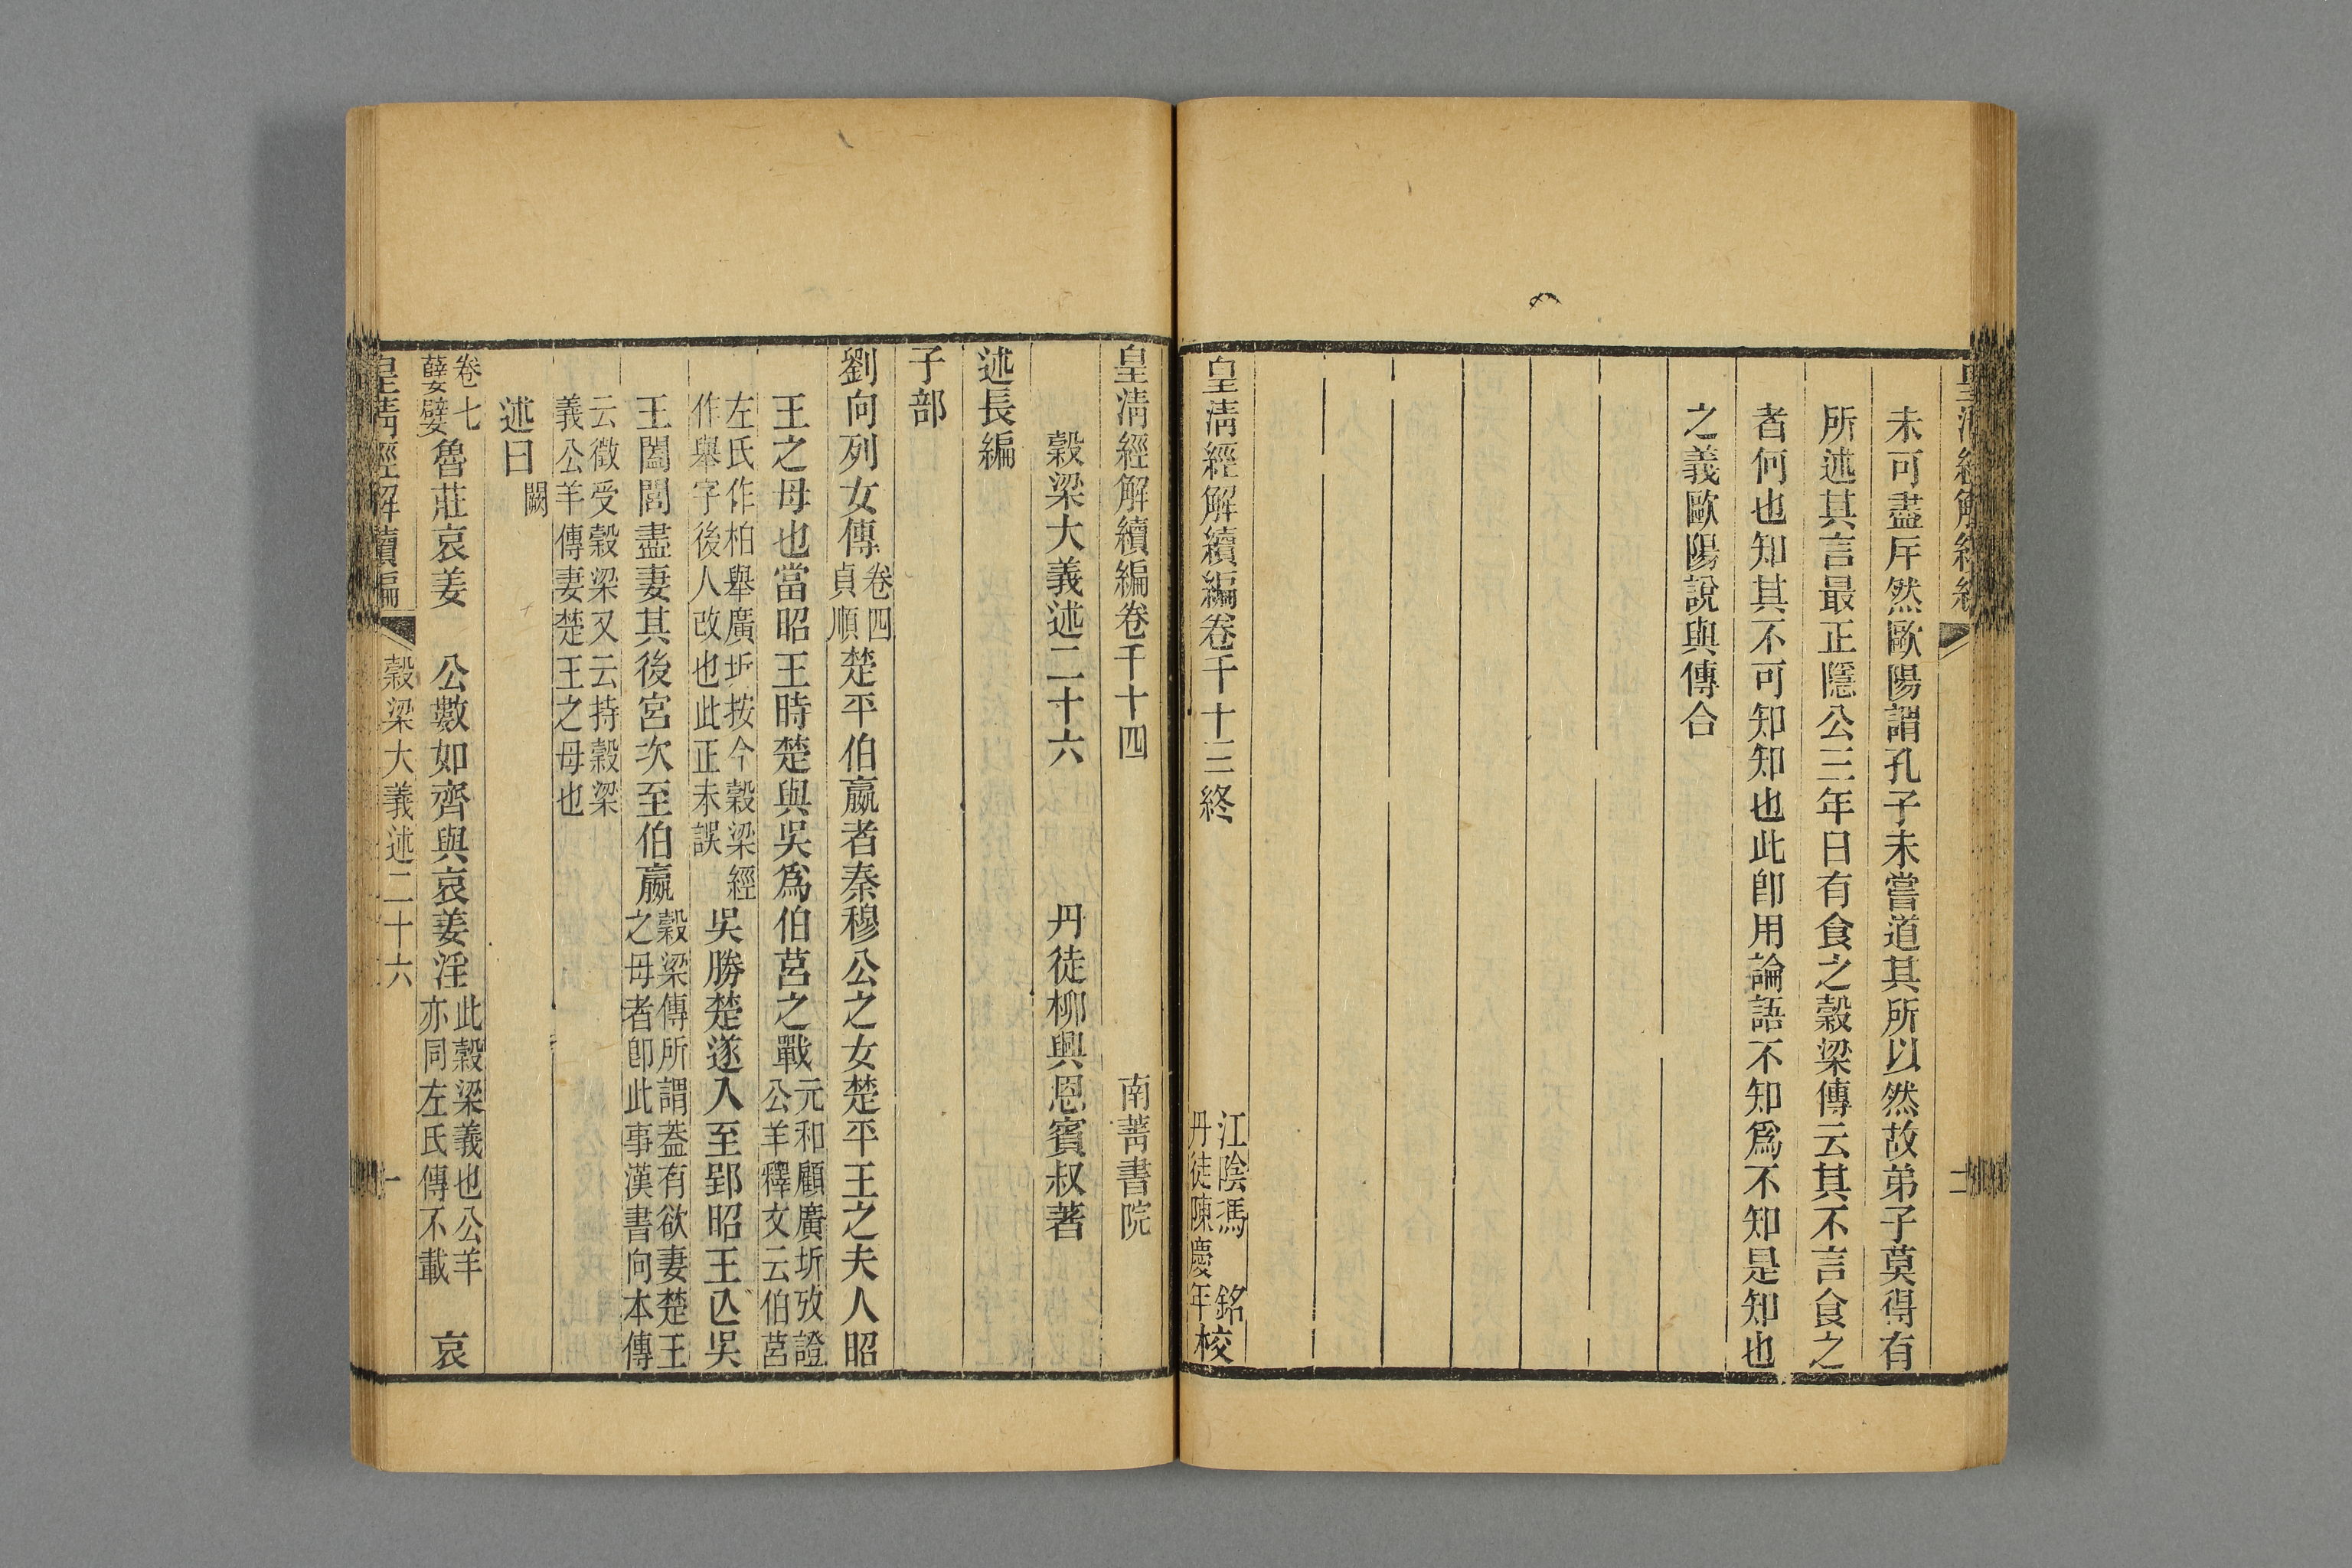 未可盡斥然歐陽謂孔子未嘗道其所以然故弟子莫得有
所述其言最正隱公三年日有食之穀梁傳云其不言食之
者何也知其不可知知也此卽用論語不知爲不知是知也
之義歐陽說與傳合
皇淸經解續編卷千十三終
江陰馮 銘
丹徒陳慶年校
皇淸經解續編卷千十四
南菁書院
穀梁大義述二十六
丹徒柳興恩賓叔著
述長編
子部
劉向列女傳卷四貞順楚平伯嬴者秦穆公之女楚平王之夫人昭
王之母也當昭王時楚與吳爲伯莒之戰元和顧廣圻攷證公羊釋文云伯莒
左氏作柏舉廣圻按今穀梁經作舉字後人改也此正未誤吳勝楚遂入至郢昭王亾吳
王闔閭盡妻其後宮次至伯嬴穀梁傳所謂葢有欲妻楚王之母者卽此事漢書向本傳
云徵受穀梁又云持穀梁義公羊傳妻楚王之母也
述曰闕
卷七孽嬖魯莊哀姜 公數如齊與哀姜淫此穀梁義也公羊亦同左氏傳不載 哀
皇淸經解續編
穀梁大義述二十六
一